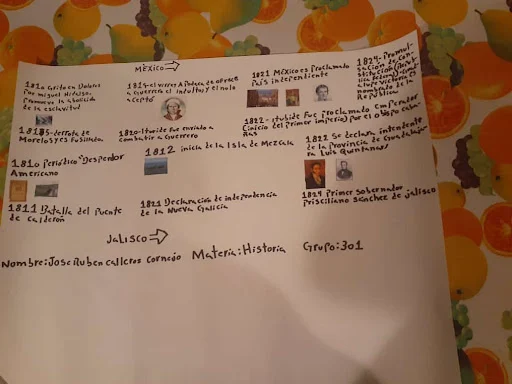 México
1810 Grito en Dolores
Por miguel Hidalgo,
promueve la abolición
de la esclavitud
1815-derrota de
Morelos y es fusilado.
el virrey Apodaca ofrece
a Guerrero el indulto y el no lo
acepto
1820-Iturbide fue enviado a
combatir a Guerrero
1821 México es proclamado
País independiente
1822- iturbide fue proclamado emperador
(inicio del primer imperio) por el obispo Cabañas
1824-Promulgación de
Constitución
Guadalupe victoria es
nombrado de la
República
1810 periódico "Despertador
Americano
1811 Batalla del Puente
de calderón
1812 inicia de la Isla de Mezcala
1821 Declaración de independencia
de la Nueva Galicia
1822 Se declara intendente
de la provincia de Guadalajara
Luis Quintanar
1824 Primer gobernador
Prisciliano Sánchez de jalisco
Jalisco
Nombre:Jose Ruben calleros Cornejo Materia:Historia Grupo:301